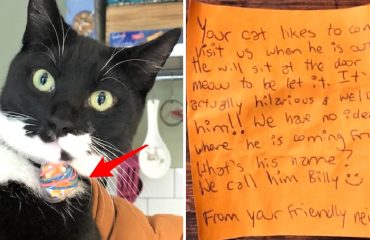 Your cat likes to come
visit us when he is out
He will sit at the door
meow to be let it. It
actually hilarious & we l
him!! We have no idea
where he is coming from
What's his name?
We call him Billy
From your friendly nei